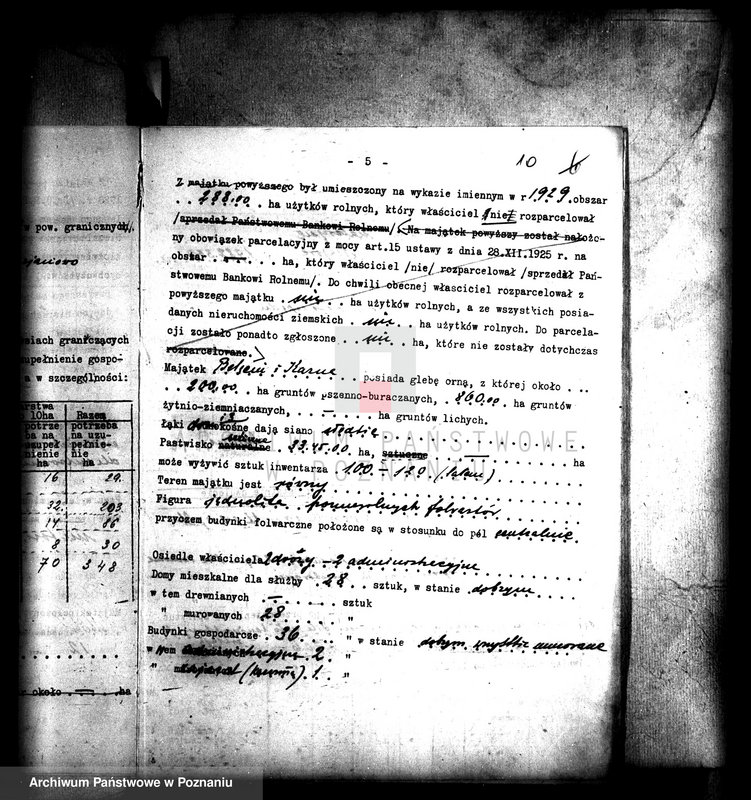 w pow. granicznych/.
siach granicznych
zupełnienie gospo-
a w szczególności:
rstwa
10ha
potrze
ba na
uzupeł
nienie
ha
Razem
potrzeba
na uzu-
pełnie-
nie
ha
16 29.
32. 203.
14 86
8 30
70 348
ar około — ha
- 5 -
10
Z majątku powyższego był umieszczony na wykazie imiennym w r 1929 obszar
. . 288.00 . ha użytków rolnych, który właściciel /nie/ rozparcelował
/sprzedał Państwowemu Bankowi Rolnemu/ Na majątek powyższy został nałożo-
ny obowiązek parcelacyjny z mocy art.15 ustawy z dnia 28.XII.1925 r. na
obszar . . — . . ha, który właściciel /nie/ rozparcelował /sprzedał Pań-
stwowemu Bankowi Rolnemu/. Do chwili obecnej właściciel rozparcelował z
powyższego majątku . nic . . ha użytków rolnych, a ze wszystkich posia-
danych nieruchomości ziemskich . . nic . . ha użytków rolnych. Do parcela-
cji zostało ponadto zgłoszone . . nic . . ha, które nie zostały dotychczas
rozparcelowane.
Majątek . . i Karna . . . posiada glebę orną, z której około . . .
. . 200,00 . . ha gruntów pszenno-buraczanych, . 860.00 . ha gruntów
żytnio-ziemniaczanych, . . . — . . . ha gruntów lichych.
Łąki kośne dają siano słodkie
Pastwisko naturalne . 23.45.00 . ha, sztuczne . . — . . ha
może wyżywić sztuk inwentarza . 100 - 120 (latem)
Teren majątku jest równy
Figura jednolita folwarków
przyczem budynki folwarczne położone są w stosunku do pól centralnie.
Osiedle właściciela - 2 administracyjne
Domy mieszkalne dla służby . 28 . . sztuk, w stanie dobrym
w tem drewnianych . . — . . . . sztuk
" murowanych 28 . . . . "
Budynki gospodarcze . 36 . . . . " w stanie dobrym, murowane
w tem . 2. . "
" . 1. . "
ARCHIWUM PAŃSTWOWE
W POZNANIU
Archiwum Państwowe w Poznaniu